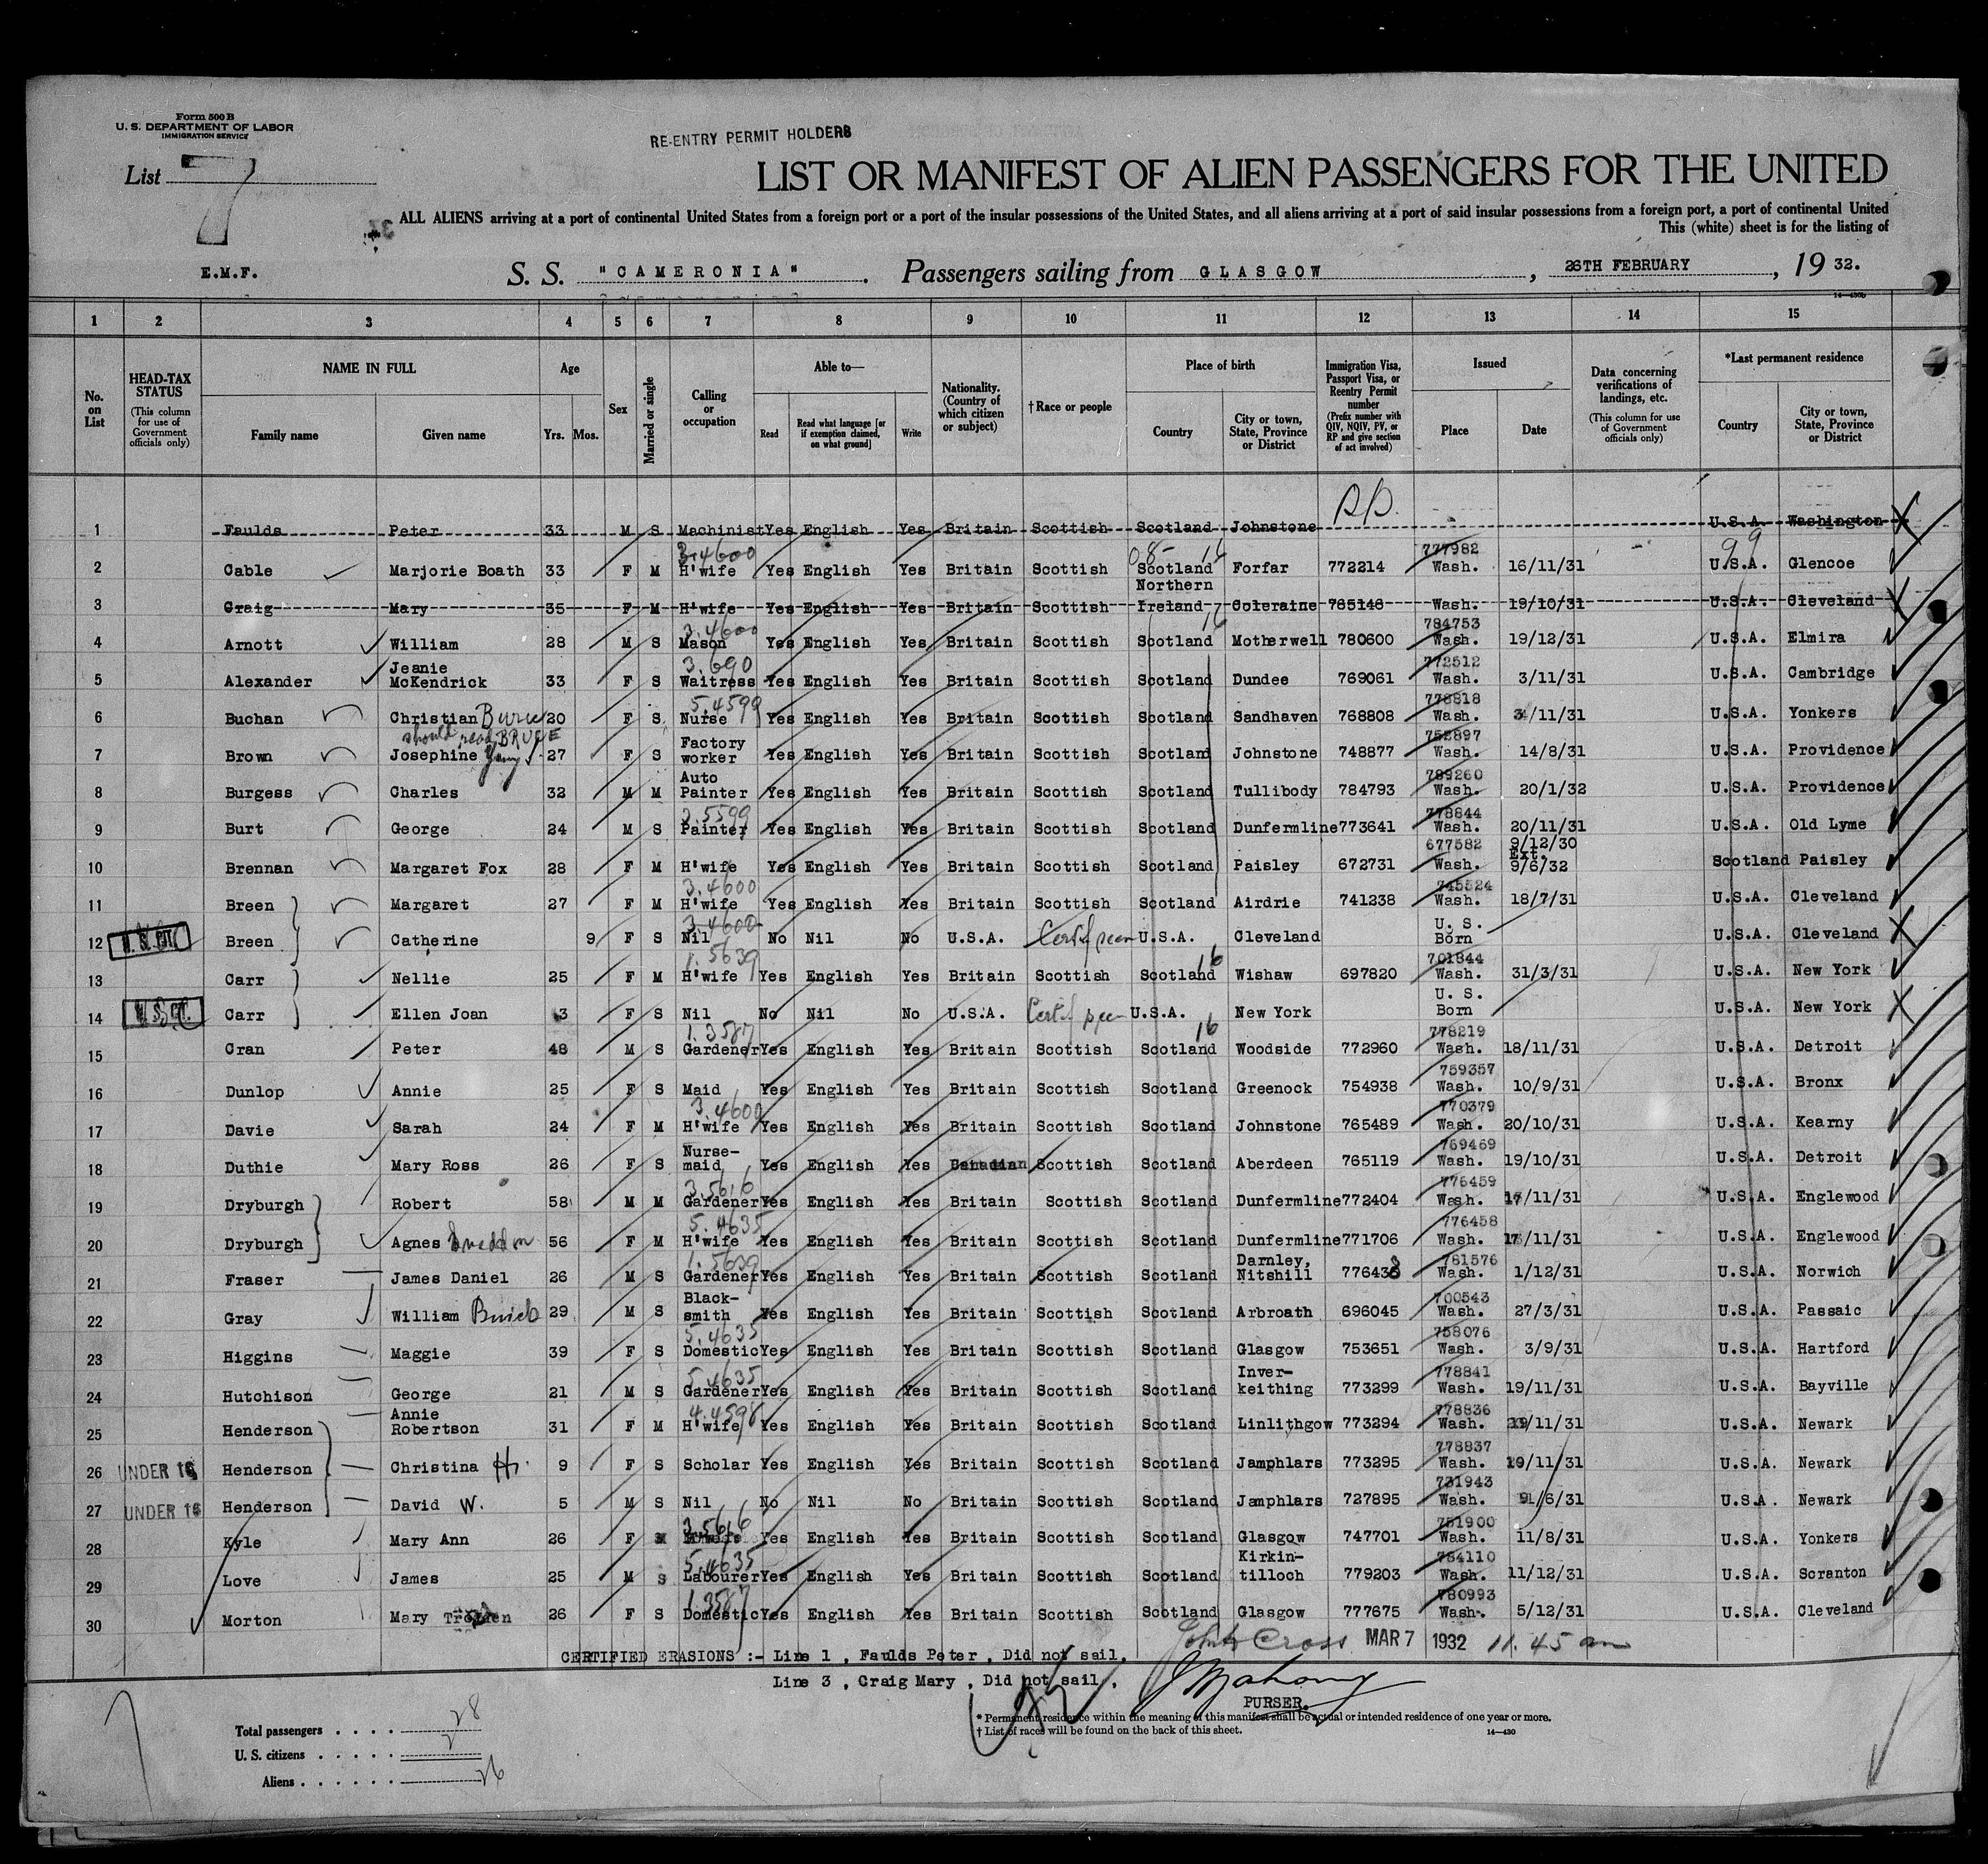 Form 500 B
U. S. DEPARTMENT OF LABOR
IMMIGRATION SERVICE
RE-ENTRY PERMIT HOLDERS
List 7
LIST OR MANIFEST OF ALIEN PASSENGERS FOR THE UNITED
ALL ALIENS arriving at a port of continental United States from a foreign port or a port of the insular possessions of the United States, and all aliens arriving at a port of said insular possessions from a foreign port, a port of continental United
This (white) sheet is for the listing of
E.M.F. S. S. "CAMERONIA". Passengers sailing from GLASGOW, 26TH FEBRUARY, 19 32.
14—430b
1 2 3 4 5 6 7 8 9 10 11 12 13 14 15
No. on List
HEAD-TAX STATUS (This column for use of Government officials only)
NAME IN FULL Family name Given name
Age Yrs. Mos.
Sex
Married or single
Calling or occupation
Able to— Read Read what language [or if exemption claimed, on what ground] Write
Nationality. (Country of which citizen or subject)
†Race or people
Place of birth Country City or town, State, Province or District
Immigration Visa, Passport Visa, or Reentry Permit number (Prefix number with QIV, NQIV, PV, or RP and give section of act involved)
Issued Place Date
Data concerning verifications of landings, etc. (This column for use of Government officials only)
*Last permanent residence Country City or town, State, Province or District
1 Faulds Peter 33 M S Machinist Yes English Yes Britain Scottish Scotland Johnstone U.S.A. Washington
2 Cable Marjorie Boath 33 F M 3.4600 H'wife Yes English Yes Britain Scottish Scotland Forfar 772214 777982 Wash. 16/11/31 U.S.A. Glencoe
3 Graig Mary 35 F M H'wife Yes English Yes Britain Scottish Northern Ireland Coleraine 785148 Wash. 19/10/31 U.S.A. Cleveland
4 Arnott William 28 M S 3.4600 Mason Yes English Yes Britain Scottish Scotland 16 Motherwell 780600 784753 Wash. 19/12/31 U.S.A. Elmira
5 Alexander Jeanie McKendrick 33 F S 3.690 Waitress Yes English Yes Britain Scottish Scotland Dundee 769061 772512 Wash. 3/11/31 U.S.A. Cambridge
6 Buchan Christian 20 F S 5.4599 Nurse Yes English Yes Britain Scottish Scotland Sandhaven 768808 Wash. /11/31 U.S.A. Yonkers
should read BRUCE
7 Brown Josephine 27 F S Factory worker Yes English Yes Britain Scottish Scotland Johnstone 748877 752897 Wash. 14/8/31 U.S.A. Providence
8 Burgess Charles 32 M M Auto Painter Yes English Yes Britain Scottish Scotland Tullibody 784793 789260 Wash. 20/1/32 U.S.A. Providence
9 Burt George 24 M S 3.5599 Painter Yes English Yes Britain Scottish Scotland Dunfermline 773641 778844 Wash. 20/11/31 U.S.A. Old Lyme
10 Brennan Margaret Fox 28 F M H'wife Yes English Yes Britain Scottish Scotland Paisley 672731 677582 Wash. 9/12/30 Ext. 9/6/32 Scotland Paisley
11 Breen Margaret 27 F M 3.4600 H'wife Yes English Yes Britain Scottish Scotland Airdrie 741238 745524 Wash. 18/7/31 U.S.A. Cleveland
12 U.S. CIT. Breen Catherine 9 F S 3.4600 Nil No Nil No U.S.A. Certif seen U.S.A. Cleveland U. S. Born U.S.A. Cleveland
13 Carr Nellie 25 F M 1.5639 H'wife Yes English Yes Britain Scottish Scotland 16 Wishaw 697820 701844 Wash. 31/3/31 U.S.A. New York
14 U.S. CIT. Carr Ellen Joan 3 F S Nil No Nil No U.S.A. Certif seen U.S.A. New York U. S. Born U.S.A. New York
15 Cran Peter 48 M S 1.3587 Gardener Yes English Yes Britain Scottish Scotland 16 Woodside 772960 778219 Wash. 18/11/31 U.S.A. Detroit
16 Dunlop Annie 25 F S Maid Yes English Yes Britain Scottish Scotland Greenock 754938 759357 Wash. 10/9/31 U.S.A. Bronx
17 Davie Sarah 24 F M 3.4600 H'wife Yes English Yes Britain Scottish Scotland Johnstone 765489 770379 Wash. 20/10/31 U.S.A. Kearny
18 Duthie Mary Ross 26 F S Nurse-maid Yes English Yes Scottish Scotland Aberdeen 765119 769469 Wash. 19/10/31 U.S.A. Detroit
19 Dryburgh Robert 58 M M 3.5616 Gardener Yes English Yes Britain Scottish Scotland Dunfermline 772404 776459 Wash. 17/11/31 U.S.A. Englewood
20 Dryburgh Agnes 56 F M 5.4635 H'wife Yes English Yes Britain Scottish Scotland Dunfermline 771706 776458 Wash. 17/11/31 U.S.A. Englewood
21 Fraser James Daniel 26 M S 1.5639 Gardener Yes English Yes Britain Scottish Scotland Darnley, Nitshill 776438 781576 Wash. 1/12/31 U.S.A. Norwich
22 Gray William 29 M S Black-smith Yes English Yes Britain Scottish Scotland Arbroath 696045 700543 Wash. 27/3/31 U.S.A. Passaic
23 Higgins Maggie 39 F S 5.4635 Domestic Yes English Yes Britain Scottish Scotland Glasgow 753651 758076 Wash. 3/9/31 U.S.A. Hartford
24 Hutchison George 21 M S 5.4635 Gardener Yes English Yes Britain Scottish Scotland Inver-keithing 773299 778841 Wash. 19/11/31 U.S.A. Bayville
25 Henderson Annie Robertson 31 F M 4.4598 H'wife Yes English Yes Britain Scottish Scotland Linlithgow 773294 778836 Wash. 19/11/31 U.S.A. Newark
26 UNDER 16 Henderson Christina H. 9 F S Scholar Yes English Yes Britain Scottish Scotland Jamphlars 773295 778837 Wash. 19/11/31 U.S.A. Newark
27 UNDER 16 Henderson David W. 5 M S Nil No Nil No Britain Scottish Scotland Jamphlars 727895 731943 Wash. 9/6/31 U.S.A. Newark
28 Kyle Mary Ann 26 F 3.5616 Yes English Yes Britain Scottish Scotland Glasgow 747701 751900 Wash. 11/8/31 U.S.A. Yonkers
29 Love James 25 M S 5.4635 Labourer Yes English Yes Britain Scottish Scotland Kirkin-tilloch 779203 784110 Wash. 11/12/31 U.S.A. Scranton
30 Morton Mary 26 F S 1.3587 Domestic Yes English Yes Britain Scottish Scotland Glasgow 777675 780993 Wash. 5/12/31 U.S.A. Cleveland
Cross MAR 7 1932 11.45 am
CERTIFIED ERASIONS :- Line 1 , Faulds Peter , Did not sail.
Line 3 , Craig Mary , Did not sail.
PURSER.
* Permanent residence within the meaning of this manifest shall be actual or intended residence of one year or more.
† List of races will be found on the back of this sheet.
14—430
Total passengers . . . . 28
U. S. citizens . . . . . 2
Aliens . . . . . . 26